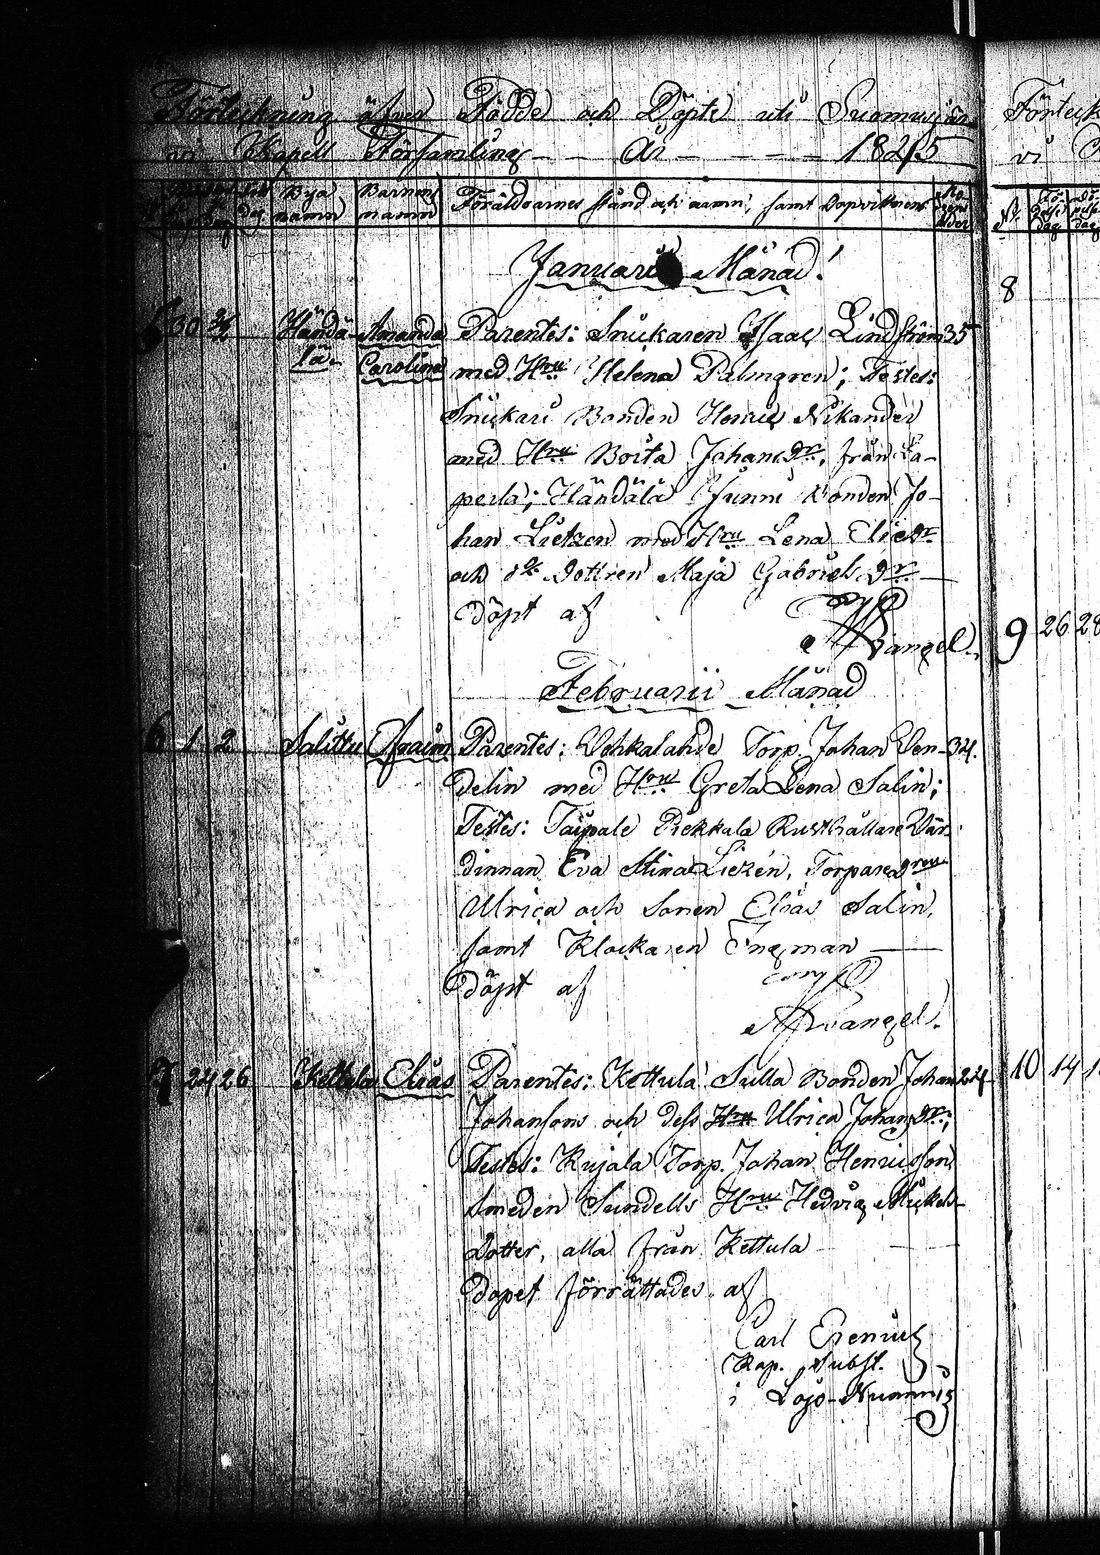 Förteckning öfver Födde och Döpte uti Suomusjär
vi Kapell Församling - - År - - - 1825
dag Bya namn Barnens namn Föräldrarnes stånd och namn, samt Dopvittnen
Januarii Månad!
5 30 Händä- Amanda Parentes: Snickaren Isaac Lindström 35
lä- Carolina med Hru Helena Palmgren; Testes:
Snickari Bonden Henric Nikander
med Hru Borta Johansdr, från La-
perla; Händälä Junni Bonden Jo-
han Lietzen med Hru Lena Eliædr
och dottren Maja Gabriels Dr
döpt af
Wangel.
Februarii Månad
6 1 2 Salittu Efraim Parentes: Vehkalahde Torp. Johan Ven- 34.
delin med Hru Greta Lena Salin;
Testes: Taipale Pekkala Rusthållare Vär-
dinnan Eva Stina Liezén, Torpare
Ulrica och Sonen Elias Salin,
samt Klockaren Ingman
döpt af
Wangel.
7 24 26 Kettula Elias Parentes: Kettula Sulla Bonden Johan 24
Johansons och dess Hru Ulrica Johansdr;
Testes: Kujala Torp. Johan Henricsson
Smeden Sundells Hru Hedvig Mickels-
Dotter, alla från Kettula
dopet förrättades af
Carl Erenius
Kap. Subst.
i Lojo-Nummis
Förteck
vi
No.
8
9 26 28
10 14